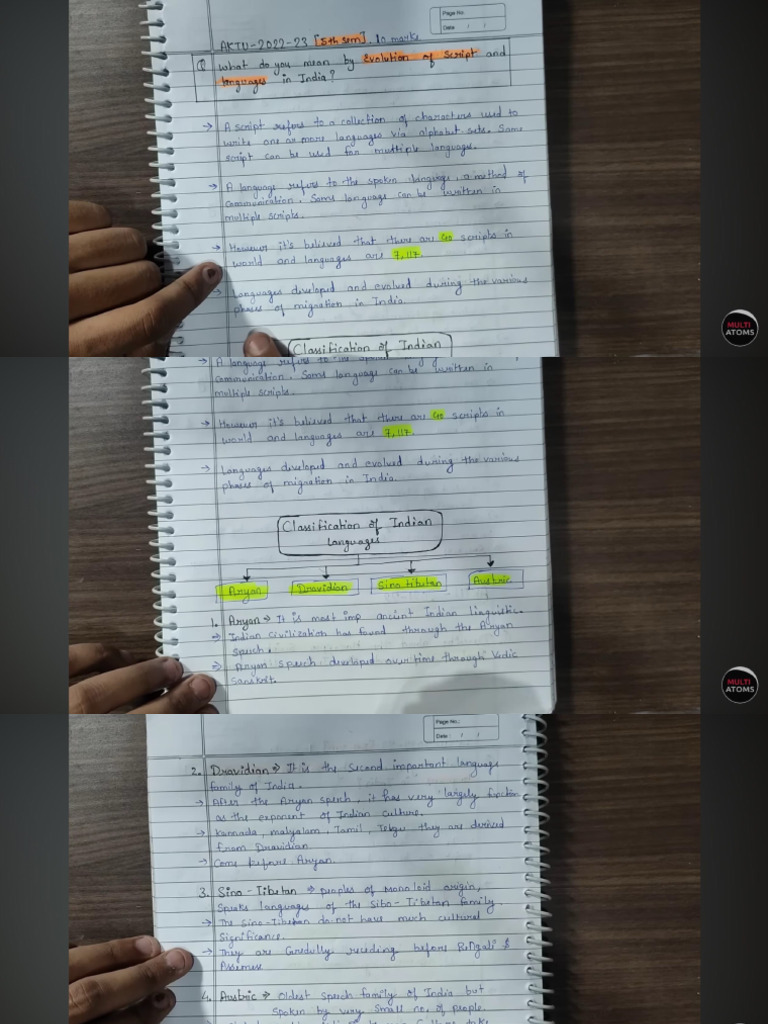 Page No.
Date / /
AKTU-2022-23 [5th sem], 10 marks
Q what do you mean by evolution of script and
languages in India?
→ A script refers to a collection of characters used to
write one or more languages via alphabet sets. Same
script can be used for multiple languages.
→ A language refers to the spoken language, a method of
communication. Same language can be written in
multiple scripts.
→ However it's believed that there are scripts in
world and languages are 7,117.
→ Languages developed and evolved during the various
phases of migration in India.
Classification of Indian
MULTI
ATOMS
→ A language refers to the
communication. Same language can be written in
multiple scripts.
→ However it's believed that there are scripts in
world and languages are 7,117.
→ Languages developed and evolved during the various
phases of migration in India.
Classification of Indian
Languages
Aryan Dravidian Sino tibetan Austric
1. Aryan → It is most imp ancient Indian linguistic.
→ Indian civilization has found through the Aryan
speech.
→ Aryan speech developed over time through Vedic
Sanskrit.
MULTI
ATOMS
Page No.:
Date: / /
2. Dravidian → It is the second important language
family of India.
→ After the Aryan speech, it has very largely function
as the exponent of Indian culture.
→ Kannada, malyalam, Tamil, Telgu they are derived
from Dravidian
→ Come before Aryan.
3. Sino-Tibetan → peoples of origin,
Speaks languages of the Sino-Tibetan family.
→ The Sino-Tibetan do not have much cultural
Significance.
→ They are receding before &
4. Austric → Oldest speech family of India but
spoken by very small no. of people.